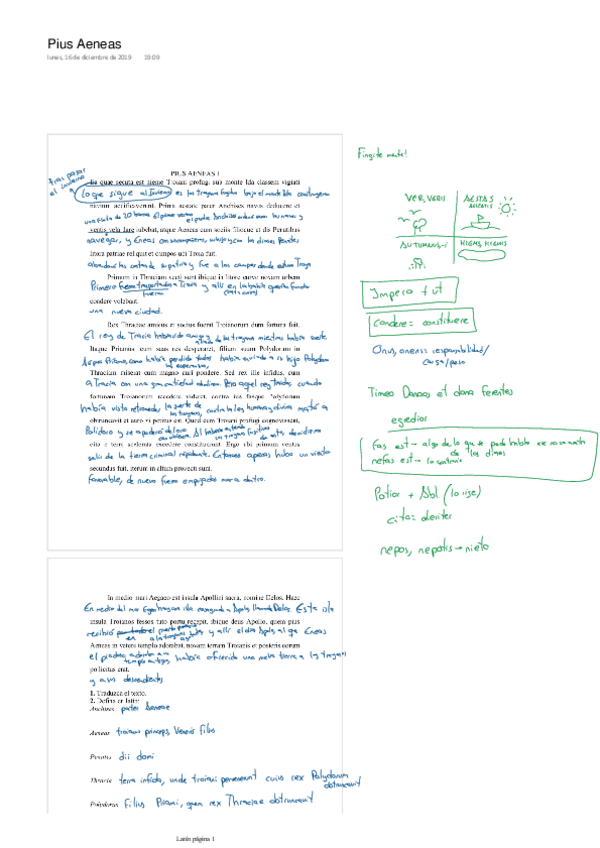 Pius Aeneas
lunes, 16 de diciembre de 2019 18:09
Fingite mente!
PIUS AENEAS I
Tras pasar
el invierno
quae secuta est hieme Troiani profugi sub monte Ida classem viginti
Lo que sigue al invierno es los troyanos fugitivos bajo el monte Ida
navium aedificaverunt. Prima aestate pater Anchises naves deducere et
una flota de 20 barcos. El primer verano el padre Anchises
ventis vela dare iubebat, atque Aeneas cum sociis filioque et dis Penatibus
navegar, y Eneas con sus compañeros, su hijo y con los dioses Penates
litora patriae reliquit et campos ubi Troia fuit.
abandonó las costas de su patria y fue a los campos donde estuvo Troya
Primum in Thraciam vecti sunt ibique in litore curvo novam urbem
Primero fueron transportados a Tracia y allí en la
condere volebant.
una nueva ciudad.
Rex Thraciae amicus et socius fuerat Troianorum dum fortuna fuit.
El rey de Tracia había sido amigo y aliado de los troyanos mientras
Itaque Priamus, cum suas res desperaret, filium suum Polydorum in
había enviado a su hijo Polydoro
Thraciam miserat cum magno auri pondere. Sed rex ille infidus, cum
a Tracia con una gran cantidad de oro. Pero aquel rey traidor, cuando
fortunam Troianorum recedere videret, contra ius fasque Polydorum
había visto retroceder la suerte de los troyanos, contra las leyes humanas y divinas mató a
obtruncavit et auro vi potitus est. Quod cum Troiani profugi cognovissent,
Polidoro y se apoderó del oro
cito e terra scelerata excedere constituerunt. Ergo ubi primum ventus
salir de la tierra criminal rápidamente. Entonces apenas hubo un viento
secundus fuit, iterum in altum provecti sunt.
favorable, de nuevo fueron empujados mar a dentro.
VER, VERIS
AESTAS
AESTATIS
AUTUMNUS-I
HIEMS, HIEMIS
Impero + ut
Condere = constituere
Onus, oneris: responsabilidad/
carga/peso
Timeo Danaos et dona ferentes
egedior
fas est → algo de lo que se puede hablar
de los dioses
nefas est → lo contrario
Potior + Abl (lo rige)
cito = celeriter
nepos, nepotis → nieto
In medio mari Aegaeo est insula Apollini sacra, nomine Delos. Haec
En medio del mar Egeo hay una isla consagrada a Apolo, llamada Delos. Esta isla
insula Troianos fessos tuto portu recepit, ibique deus Apollo, quem pius
recibió y allí el dios Apolo, al que Eneas
Aeneas in vetere templo adorabat, novam terram Troianis et posteris eorum
el piadoso había ofrecido una nueva tierra a los troyanos
pollicitus erat.
y a sus descendientes
1. Traduzca el texto.
2. Defina en latín:
Anchises pater Aeneae
Aeneas troianus princeps, Veneris filius
Penates dii domi
Thracia terra infida, unde troiani pervenerunt cuius rex Polydorum
obtruncavit
Polydorus Filius Priami, quem rex Thraciae obtruncavit
Latín página 1